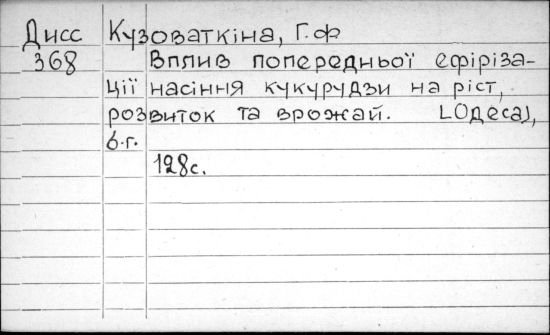 Дисс Кузоваткіна, Г.Ф
368 Вплив попередньої єфіріза-
ції насіння кукурудзи на ріст,
розвиток та врожай. [Одеса],
б.г.
128с.